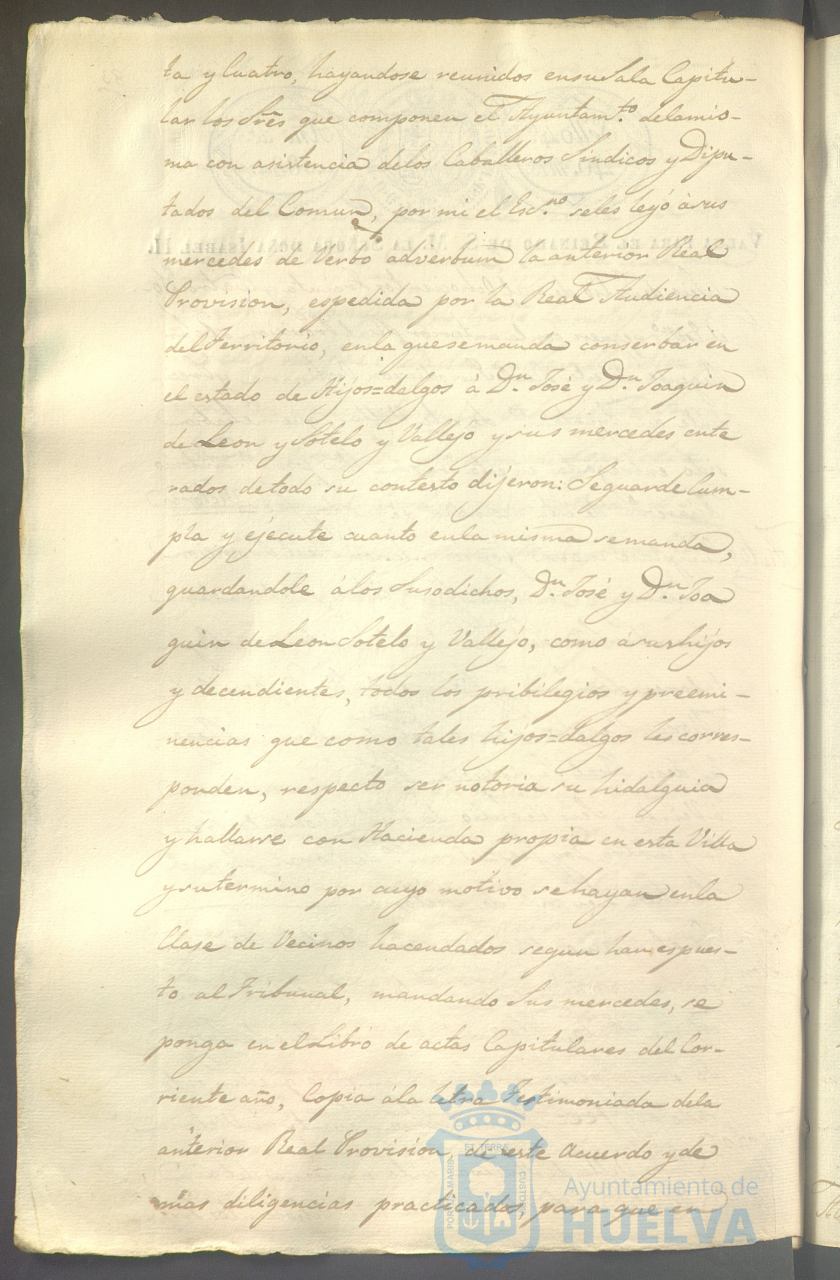 ta y Cuatro, hayandose reunidos ensu Sala Capitu-
lar los Sres. que componen el Ayuntamto. delamis-
ma con asistencia delos Caballeros Sindicos y Dipu-
tados del Comun, por mi el Escno. seles leyó à sus
mercedes de Verbo adverbum la anterior Real
Provision, espedida por la Real Audiencia
del Territorio, enla quesemanda conserbar en
el estado de Hijos=dalgos á Dn. José y Dn. Joaquin
de Leon y Sotelo y Vallejo y sus mercedes ente
rados detodo su contesto dijeron: Seguarde Cum-
pla y ejecute cuanto enla misma semanda,
guardandole álos Susodichos, Dn. José y Dn. Joa
quin de Leon Sotelo y Vallejo, como á sus hijos
y decendientes, todos los pribilegios y preemi-
nencias que como tales hijos=dalgos les corres-
ponden, respecto ser notoria su hidalguia
y hallarse con Hacienda propia en esta Villa
y su termino por cuyo motivo se hayan enla
Clase de Vecinos hacendados segun han espues-
to al Tribunal, mandando Sus mercedes, se
ponga en el Libro de actas Capitulares del Cor-
riente año, Copia ála letra Testimoniada dela
anterior Real Provision, de este Acuerdo y de
mas diligencias practicadas, para que en
VALGA PARA EL REINADO DE S. M. LA SEÑORA DOÑA ISABEL II.
PORTUS MARIS ET TERRE CUSTODIA
Ayuntamiento de
HUELVA